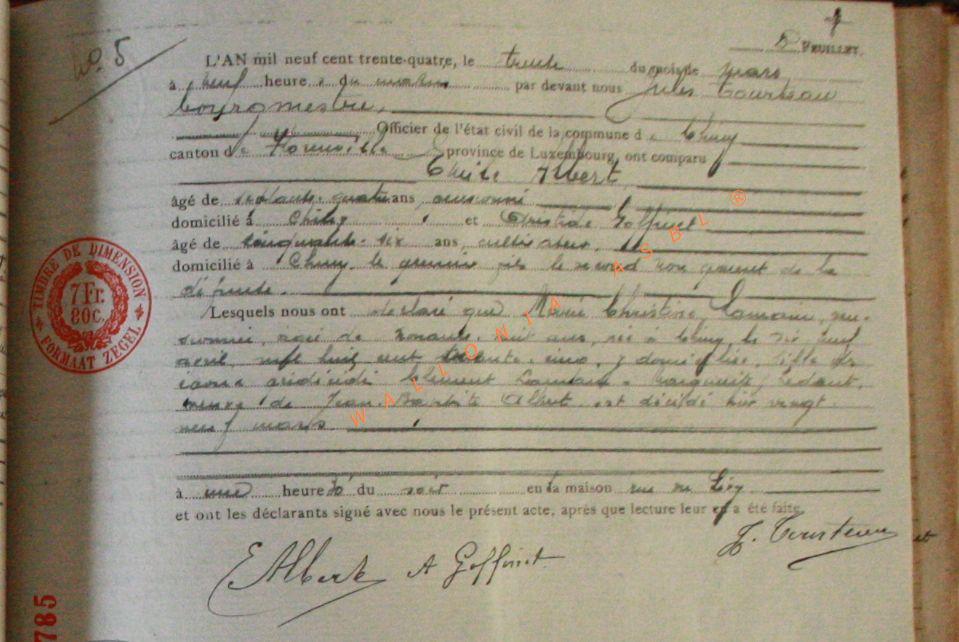 No. 5
8e FEUILLET.
L'AN mil neuf cent trente-quatre, le trente du mois de mars
à neuf heures du matin par devant nous Jules
bourgmestre
Officier de l'état civil de la commune de Chiny
canton de Florenville province de Luxembourg, ont comparu
Emile Albert,
âgé de septante-quatre ans, pensionné
domicilié à Chiny et Goffinet
âgé de cinquante-six ans, cultivateur
domicilié à Chiny le premier fils le second non parent de la
défunte.
Lesquels nous ont déclaré que Marie Christine Lamain, pen-
sionnée, âgée de nonante-huit ans, née à Chiny le dix neuf
avril mil huit cent trente-cinq, y domiciliée, fille de
décédés Clément Lambain
veuve de Jean-Baptiste Albert est décédé hier vingt-
neuf mars
à une heure du soir en sa maison rue
et ont les déclarants signé avec nous le présent acte, après que lecture leur en a été faite.
E Albert A Goffinet
TIMBRE DE DIMENSION
7 Fr.
80 C.
FORMAAT ZEGEL
785
WALLONIA ASBL ®